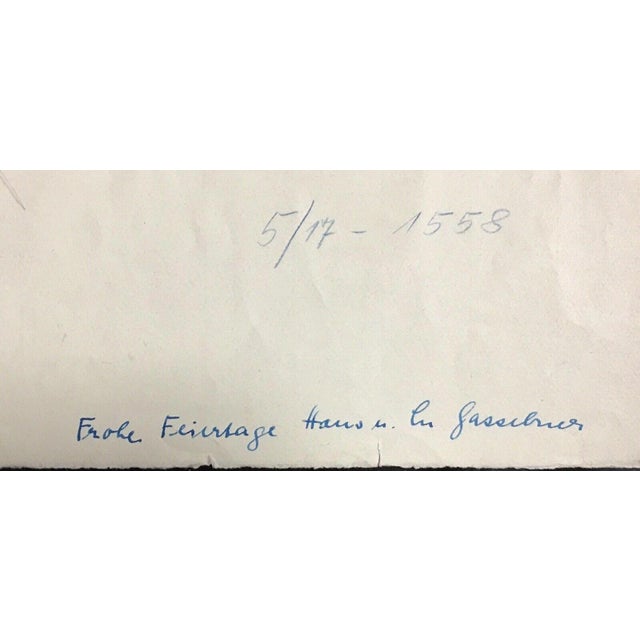 5/17 - 1558
Frohe Feiertage Hans u. Gassebner